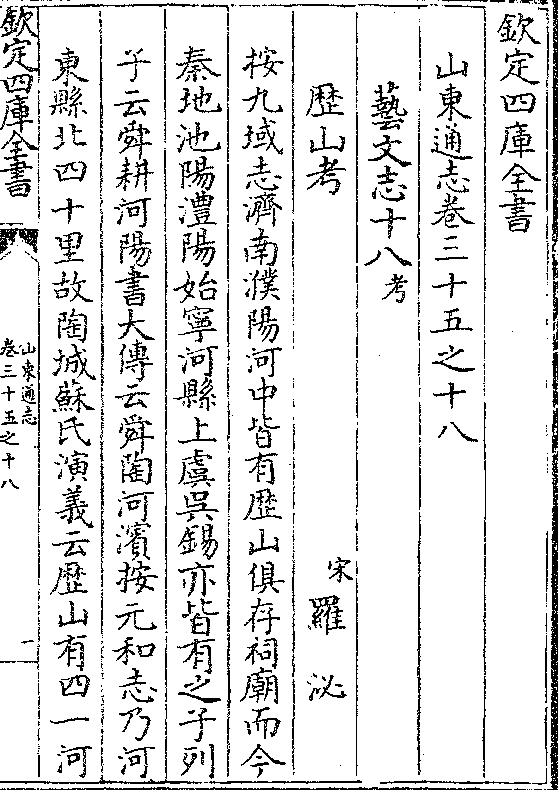 欽定四庫全書
山東通志卷三十五之十八
藝文志十八考
歴山考
宋羅泌
按九域志濟南濮陽河中皆有歴山俱存祠廟而今
秦地池陽澧陽始寧河縣上虞吳錫亦皆有之子列
子云舜耕河陽書大傳云舜陶河濱按元和志乃河
東縣北四十里故陶城蘇氏演義云歴山有四一河
欽定四庫全書
山東通志
卷三十五之十八
一